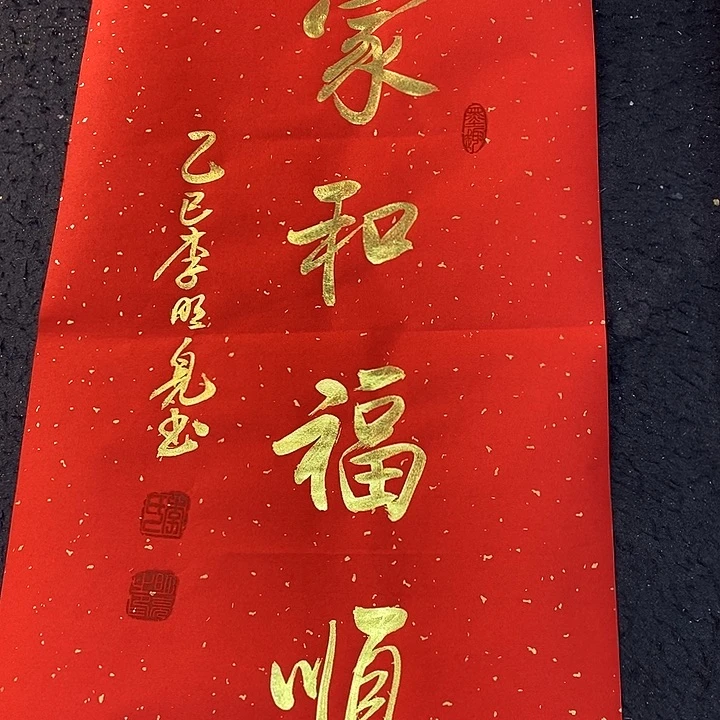 家和福順
乙巳李明見书